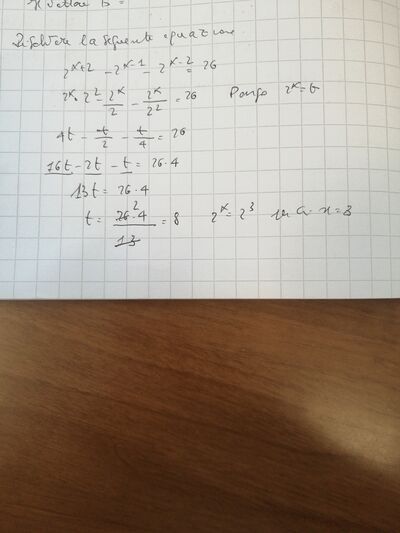 Risolvere la seguente equazione
2^{x+2} - 2^{x-1} - 2^{x-2} = 26
2^x · 2^2 - 2^x/2 - 2^x/2^2 = 26 Pongo 2^x = t
4t - t/2 - t/4 = 26
16t - 2t - t = 26·4
13t = 26·4
t = 26·4/13 = 8 2^x = 2^3 x = 3